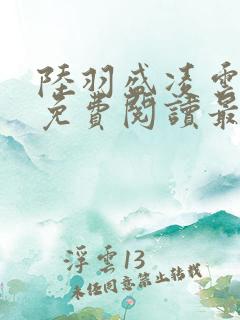 陸羽盛凌雲
免費閱讀最
浮雲13
未經同意禁止轉載